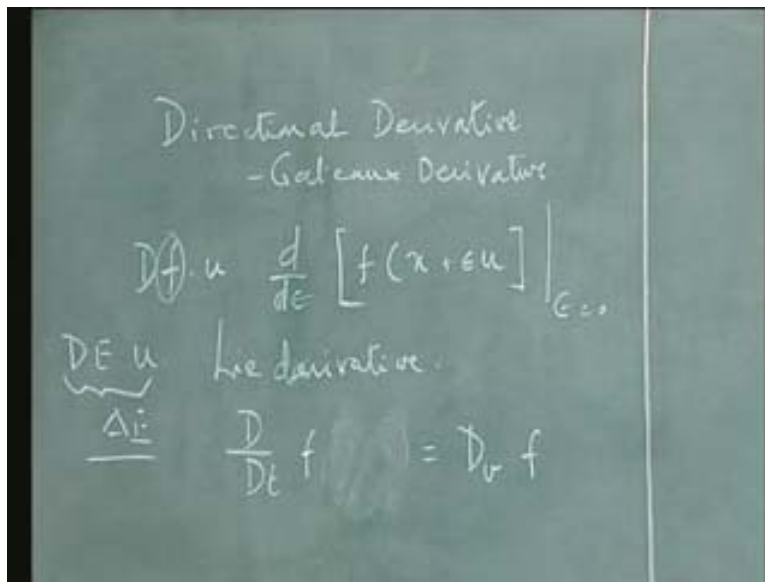 Directional Derivative
- Gateaux Derivative
Df · u d/dε [f(x + εu] |ε=0
DE u Lie derivative.
ΔE D/Dt f = Dv f